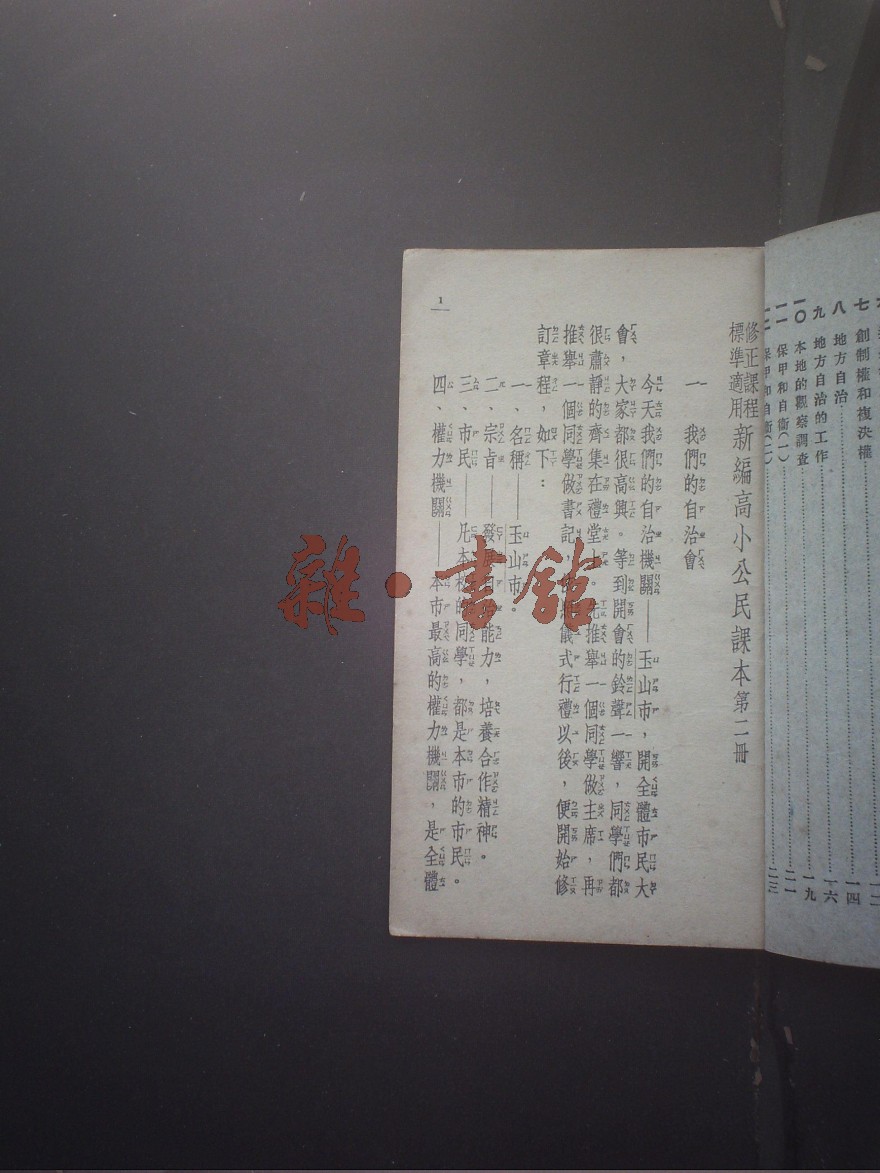 七 創制權和複決權……一二
八 地方自治……一四
九 地方自治的工作……一六
一〇 本地的觀察調查……一九
一一 保甲和自衞（一）……二一
一二 保甲和自衞（二）……二三
修正課程標準適用 新編高小公民課本第二冊
一 我們的自治會
今天我們的自治機關——玉山市，開全體市民大
會，大家都很高興。等到開會的鈴聲一響，同學們都
很肅靜的齊集在禮堂上。先推舉一個同學做主席，再
推舉一個同學做書記，儀式行禮以後，便開始修
訂章程，如下：
一、名稱——玉山市。
二、宗旨——發能力，培養合作精神。
三、市民——凡本校的同學，都是本市的市民。
四、權力機關——本市最高的權力機關，是全體
1
雜·書館